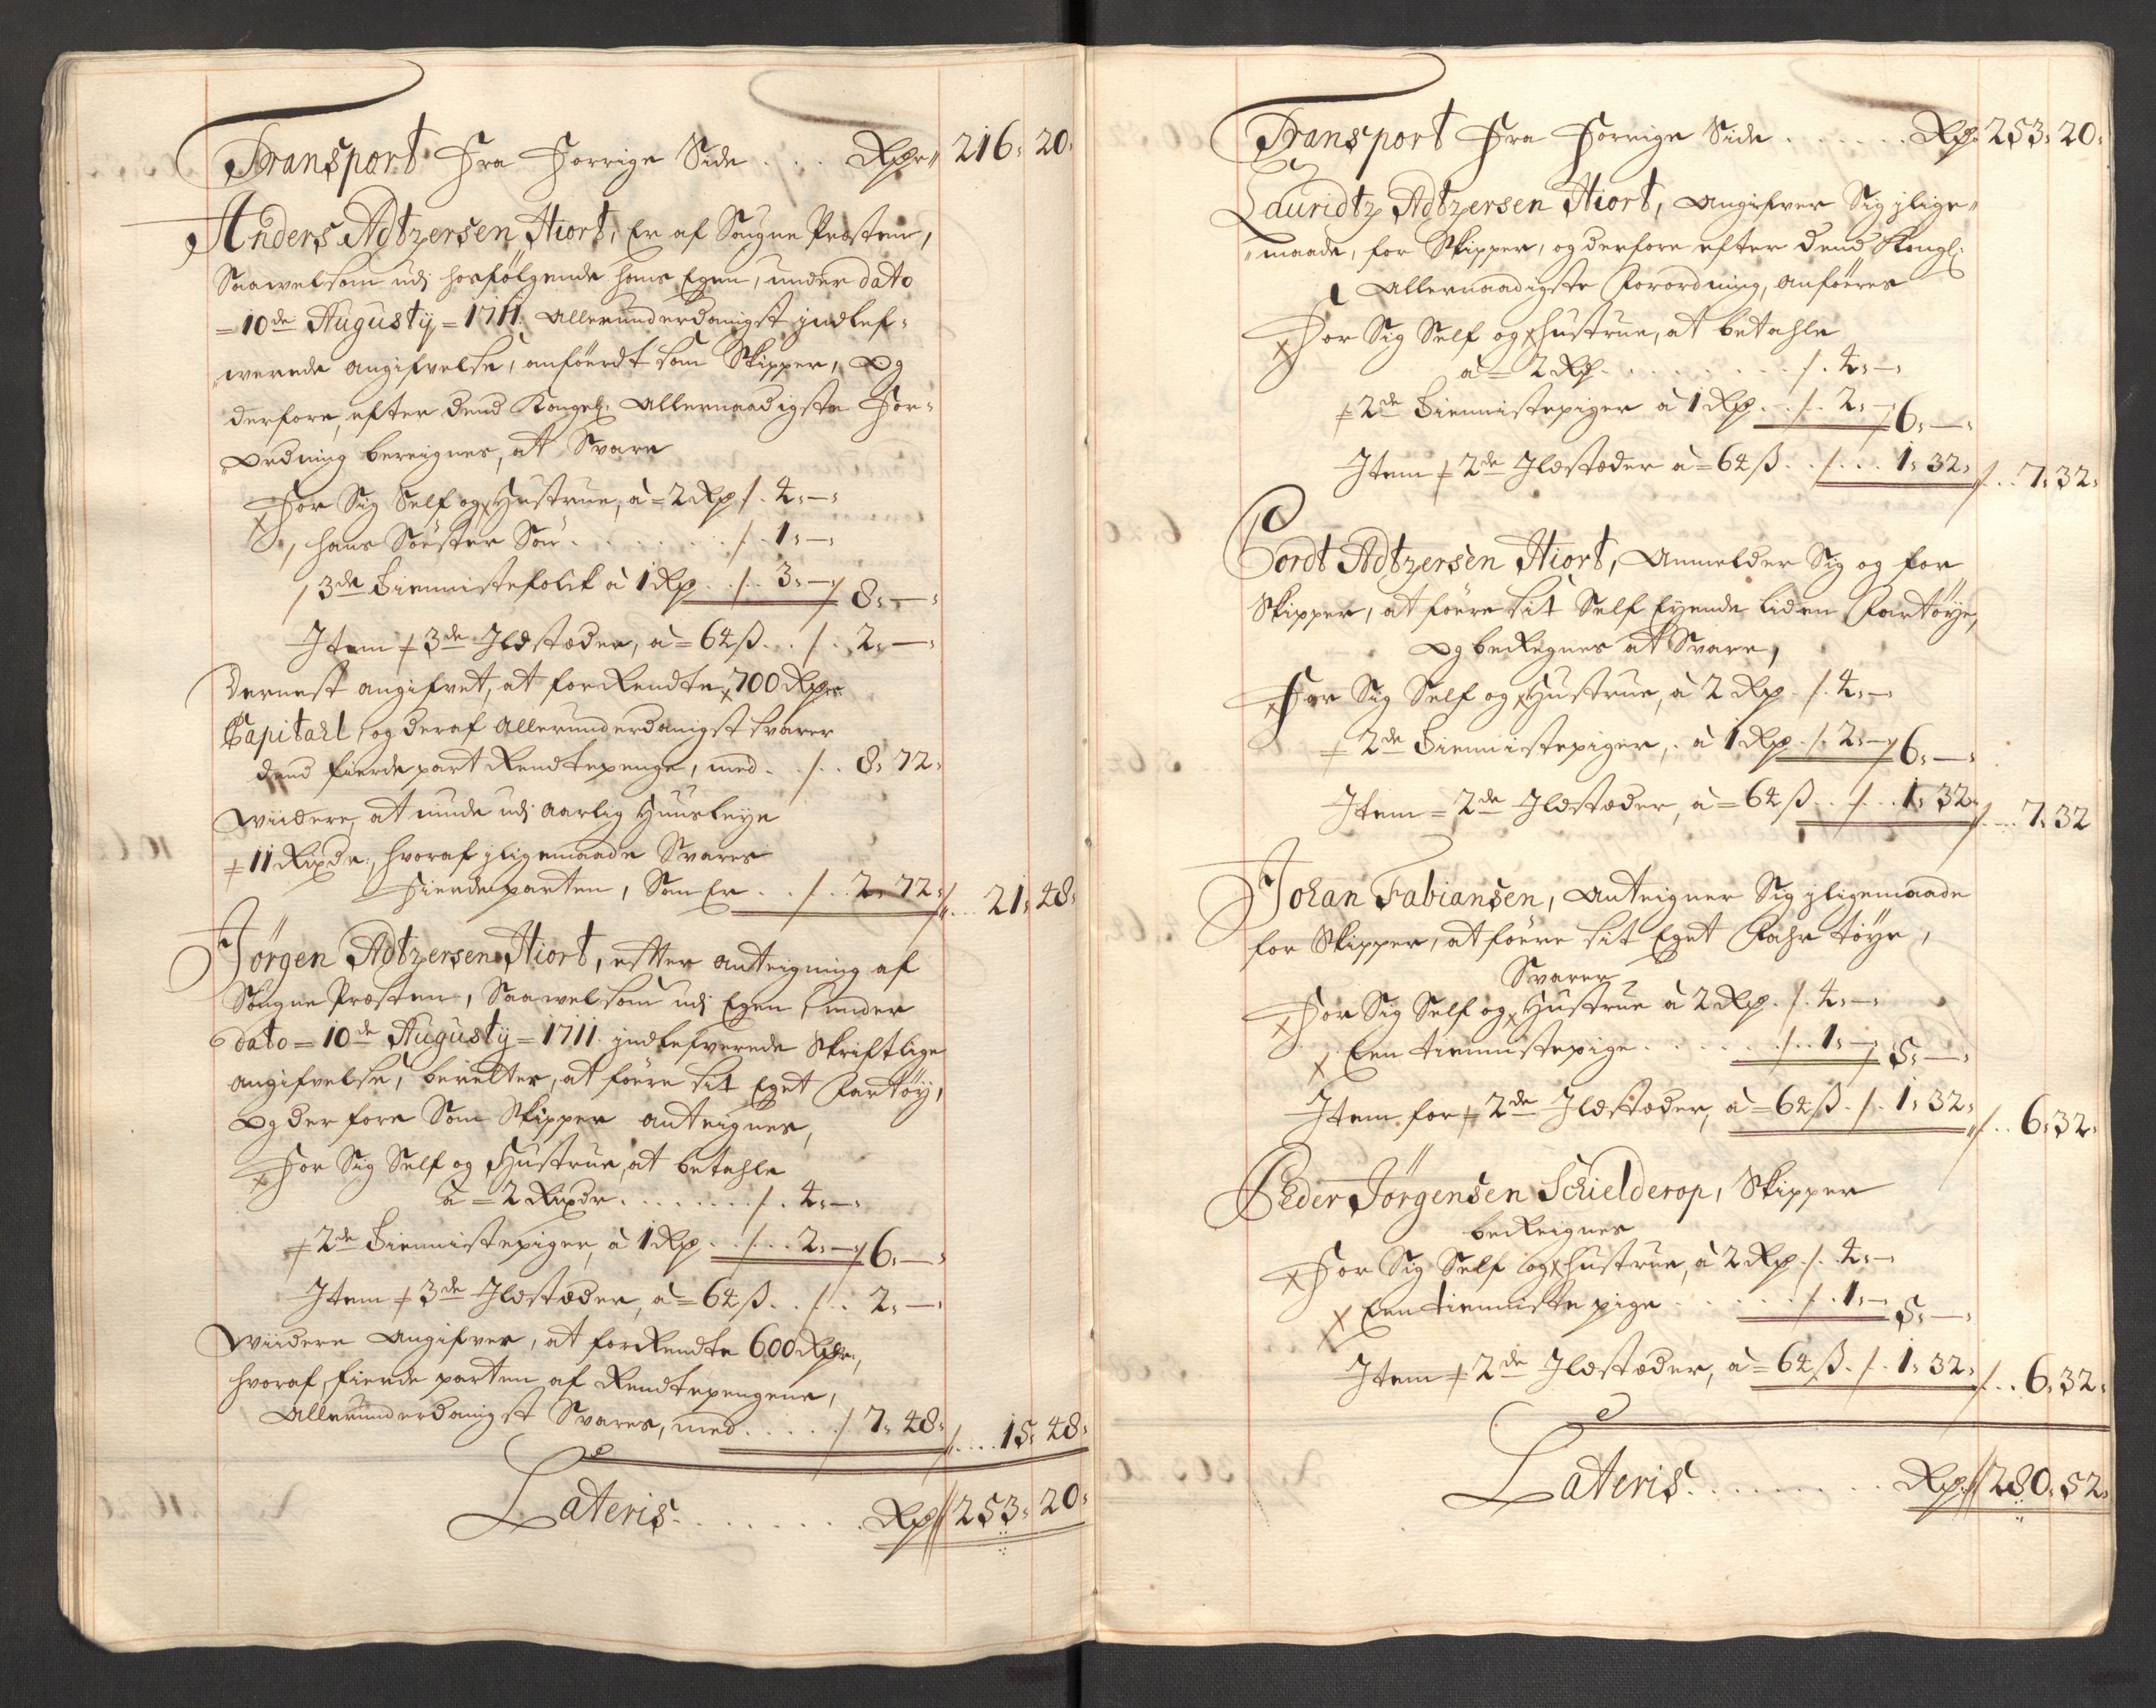 Transport fra forrige Side . . . Rdr 216: 20:
Anders Adtzersen Hiort, Er af Sougne Præsten,
Saawelsom udj hosfølgende hans Egen, under dato
= 10de Augusty = 1711. Allerunderdanigst indlef=
werede angifvelse, anføerdt som Skipper, Og
derfore, efter dend Kongel: Allernaadigste For=
Ordning bereignes, at Svare
For Sig Self og Hustrue, à = 2 Rd /. 4: —:
/ hans Søster Søn . . . . . . /. 1: —:
/ 3de Tiennistefolck à 1 Rd . /. 3: —/ 8: —:
Item / 3de Ildstæder, à = 64 ß . . /. 2: —:
Dernest angifvet, at forRendte 700 Rdr
Capitael, og deraf Allerunderdanigst svarer
dend fierde part Rendtepenge, med . /. . 8: 72:
Wiidere, at nyde udj aarlig Huusleye
/ 11 Rixdr:, hvoraf jligemaade Svares
Fierdeparten, Som Er . . /. . 2: 72: /. . . 21: 48:
Jørgen Adtzersen Hiort, efter anteigning af
Sougne Præsten, Saawelsom udj Egen under
dato = 10de Augusty = 1711. indlefverede Skriftlige
angifvelse, berettes, at føere sit Eget Fartøy,
Og derfore Som Skipper anteignes,
For Sig Self og Hustrue, at betahle
à = 2 Rixdr . . . . . . . /. 4: —:
/ 2de Tiennistepiger, à 1 Rd . . /. . . 2: —/ 6: —:
Item / 3de Ildstæder, à = 64 ß . . /. . 2: —:
Wiidere Angifves, at forRendte 600 Rdr:,
hvoraf, fierde parten af Rendtepengene,
Allerunderdanigst Svares, med . . . . . / 7: 48: /. . . . 15: 48:
Lateris . . . . . . . . Rd // 253: 20:
Transport fra forrige Side . . . . . . Rd. 253: 20:
Lauridtz Adtzersen Hiort, Angifver Sig jlige=
maade, for Skipper, og derfore efter dend Kongl:
Allernaadigste Forordning, anføeres
For Sig Self og Hustrue, at betahle
à = 2 Rd . . . . . . . . . /. 4: —:
/ 2de Tiennistepiger à 1 Rd . . /. . 2: —/ 6: —:
Item / 2de Ildstæder à = 64 ß . . /. . . 1: 32: /. . 7: 32:
Cordt Adtzersen Hiort, Anmelder Sig og for
Skipper, at føere sit Self Eyende liden Fartøye,
Og beRegnes at Svare,
For Sig Self og Hustrue, à 2 Rd . /. 4: —:
/ 2de Tiennistepiger, à 1 Rd . /. 2: —/ 6: —:
Item = 2de Ildstæder, à = 64 ß . . /. . . 1: 32: /. . . 7: 32
Johan Fabiansen, Anteigner Sig jligemaade
for Skipper, at føere sit Eget Fahrtøye,
Svarer
For Sig Self og Hustrue à 2 Rd . /. 4: —:
Een tiennistepige . . . . . . . /. . 1: —/ 5: —:
Item for / 2de Ildstæder, à = 64 ß . /. 1: 32: /. . 6: 32:
Peder Jørgensen Schielderop, Skipper
beReignes
For Sig Self og Hustrue, à 2 Rd . /. 4: —:
Een tienniste pige . . . . . . /. 1: —: 5: —:
Item / 2de Ildstæder, à = 64 ß . /. 1: 32: /. . 6: 32:
Lateris . . . . . . . . Rd. // 280: 52: